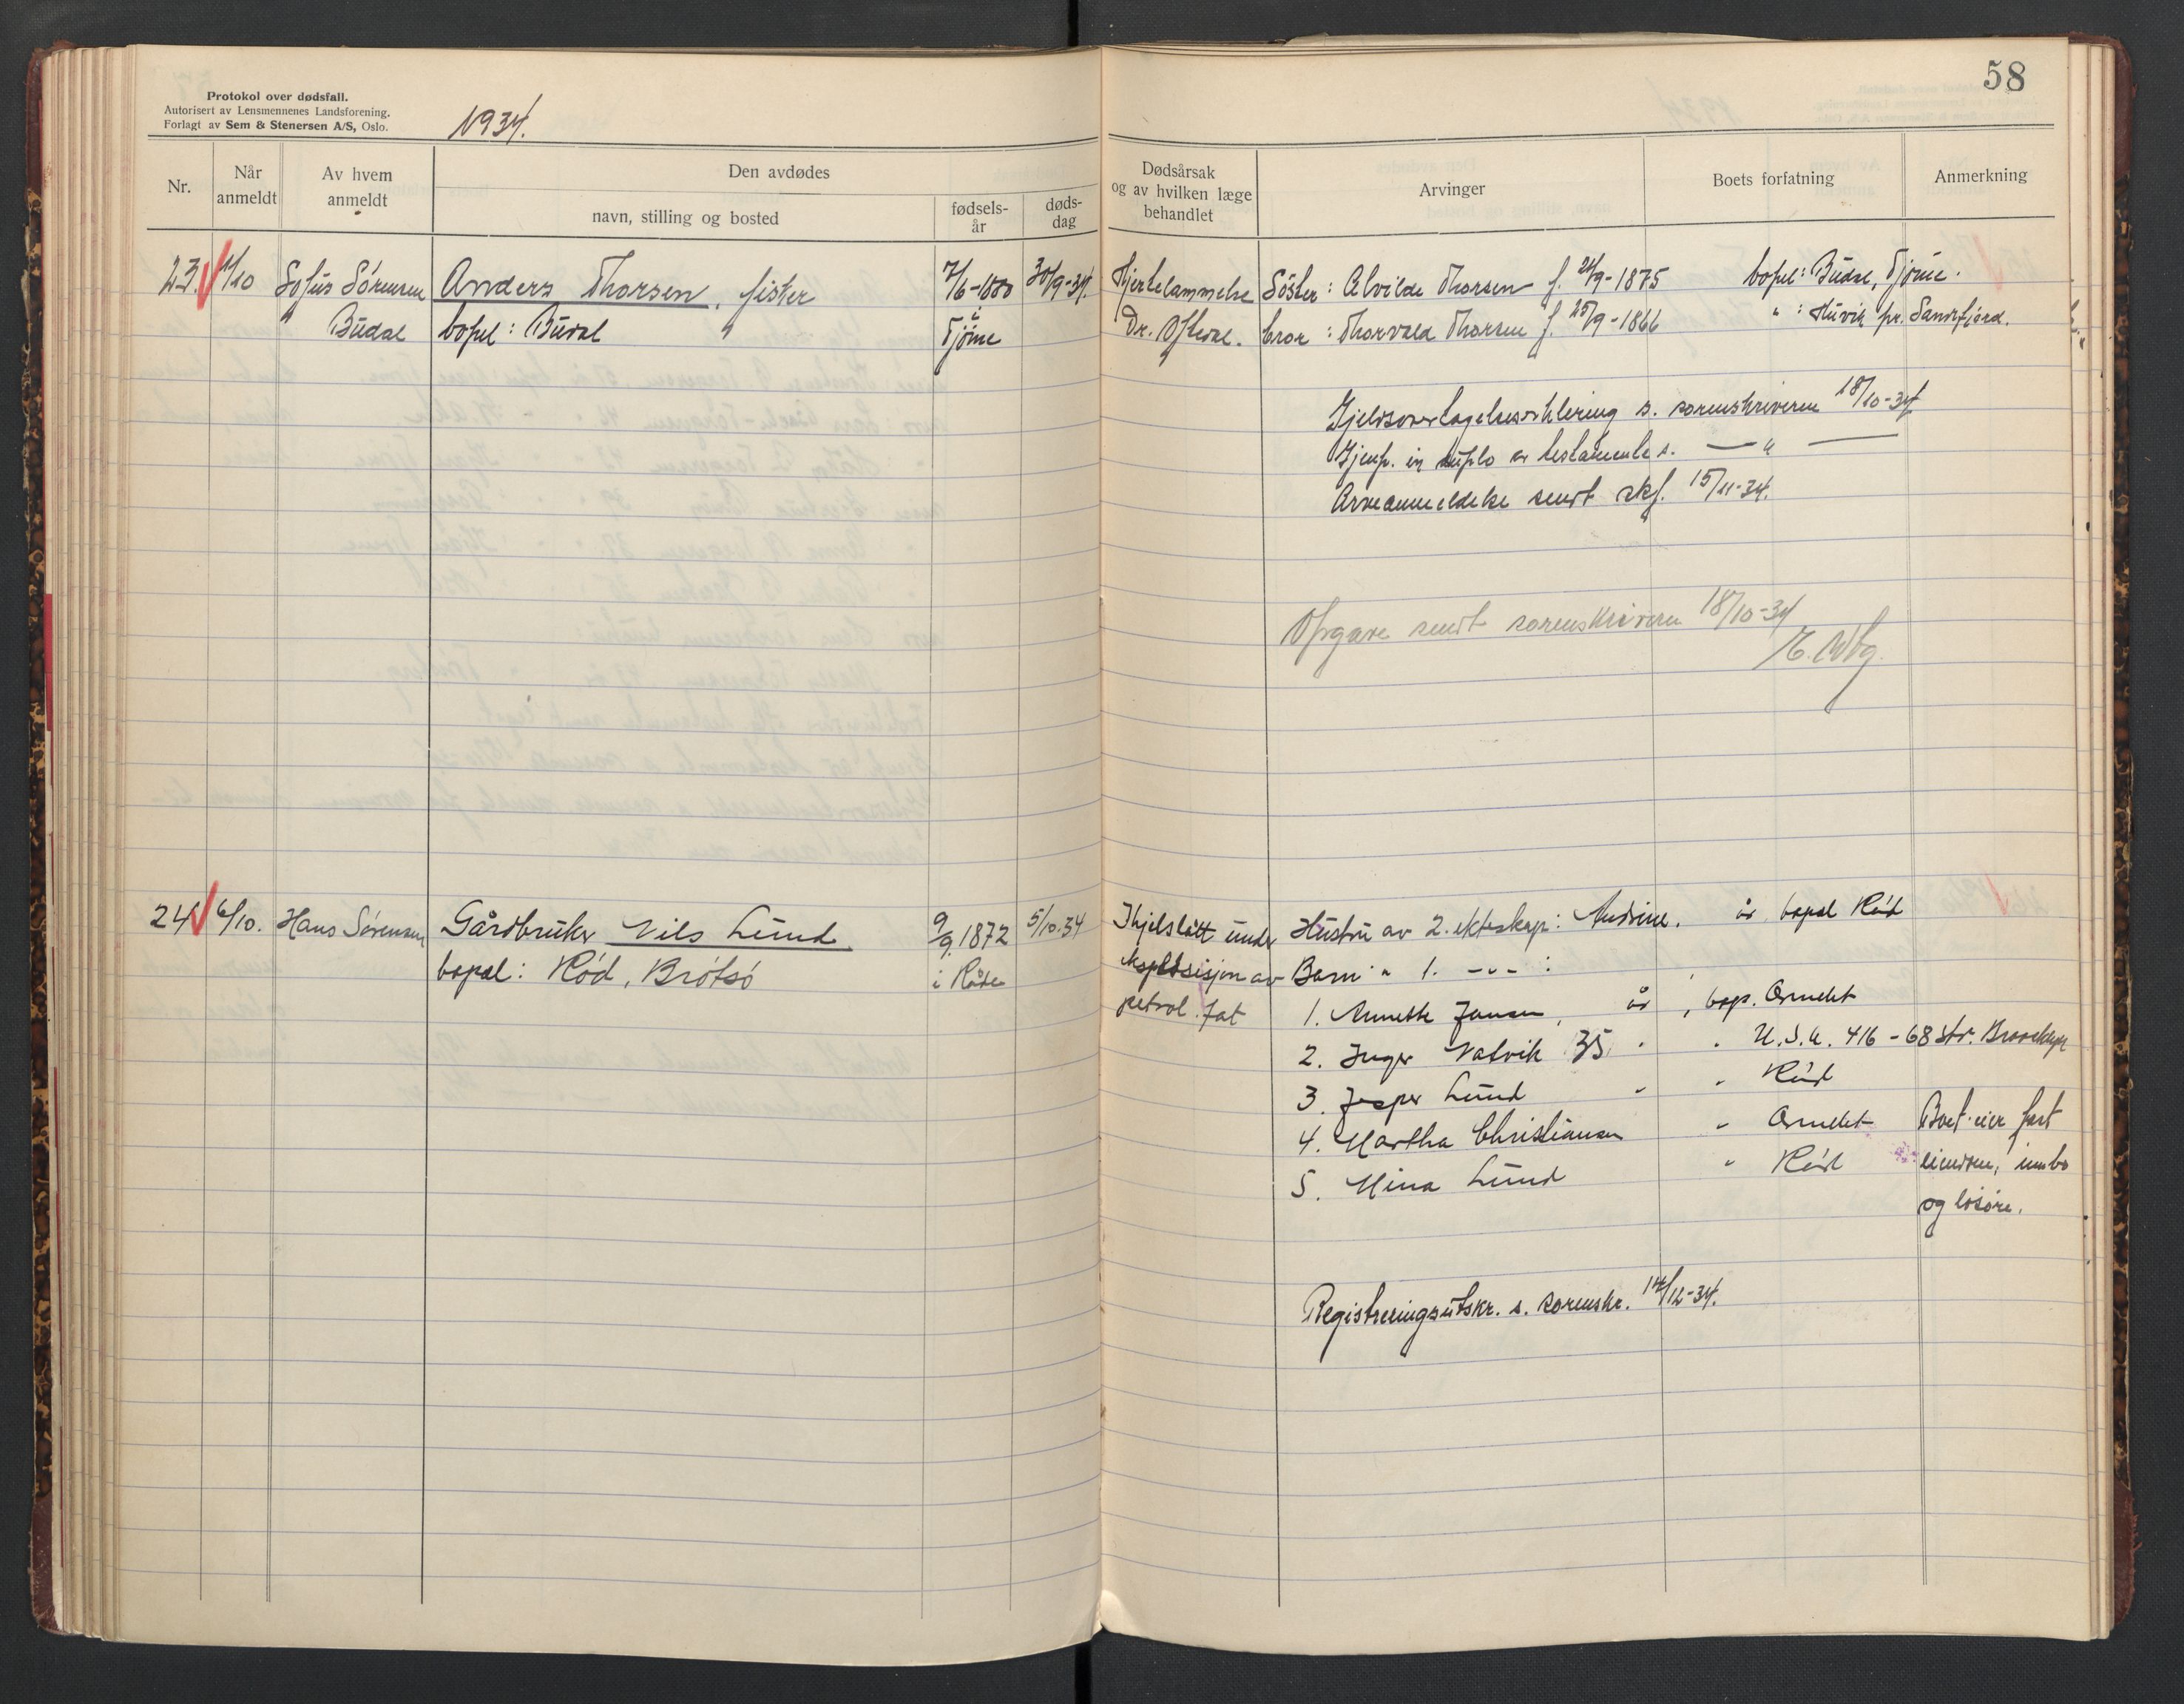 Protokol over dødsfall.
Autorisert av Lensmennenes Landsforening.
Forlagt av Sem & Stenersen A/S, Oslo.
1934.
58
Nr.
Når anmeldt
Av hvem anmeldt
Den avdødes
navn, stilling og bosted
fødsels-år
døds-dag
Dødsårsak og av hvilken læge behandlet
Arvinger
Boets forfatning
Anmerkning
23. 1/10 Sofus Sørensen Anders Thorsen, fisker 7/6-1880 30/9-34. Hjertelammelse Søster: Alvilde Thorsen f. 24/9-1875 bopel: Budal, Tjøme.
Budal bopel: Budal Tjøme Dr. Oftedal. bror: Thorvald Thorsen f. 25/9-1866 " : Huvik pr. Sandefjord.
Gjeldsovertagelseserklering s. sorenskriveren 18/10-34
Gjenp. in duplo av testamente s. — " —
Arveanmeldelse sendt skf. 15/11-34.
Opgave sendt sorenskriveren 18/10-34
24 6/10. Hans Sørensen Gårdbruker Nils Lund 9/9.1872 5/10.34 Ihjelslått under Hustru av 2. ekteskap: Andrine. år bopel Rød
bopel: Rød, Brøtsø i Råde eksplosisjon av Barn " 1. -"- :
petrol. fat 1. Annette Jansen, år, bop. Ormelet
2. Inger Natvik 35 " " U.S.A. 416 - 68 str. Brooklyn
3. Jesper Lund " " Rød
4. Martha Christiansen " Ormelet Boet eier fast
5. Mina Lund " Rød eiendom, innbo
og løsøre.
Registreringsutskr. s. sorenskr. 14/12-34.